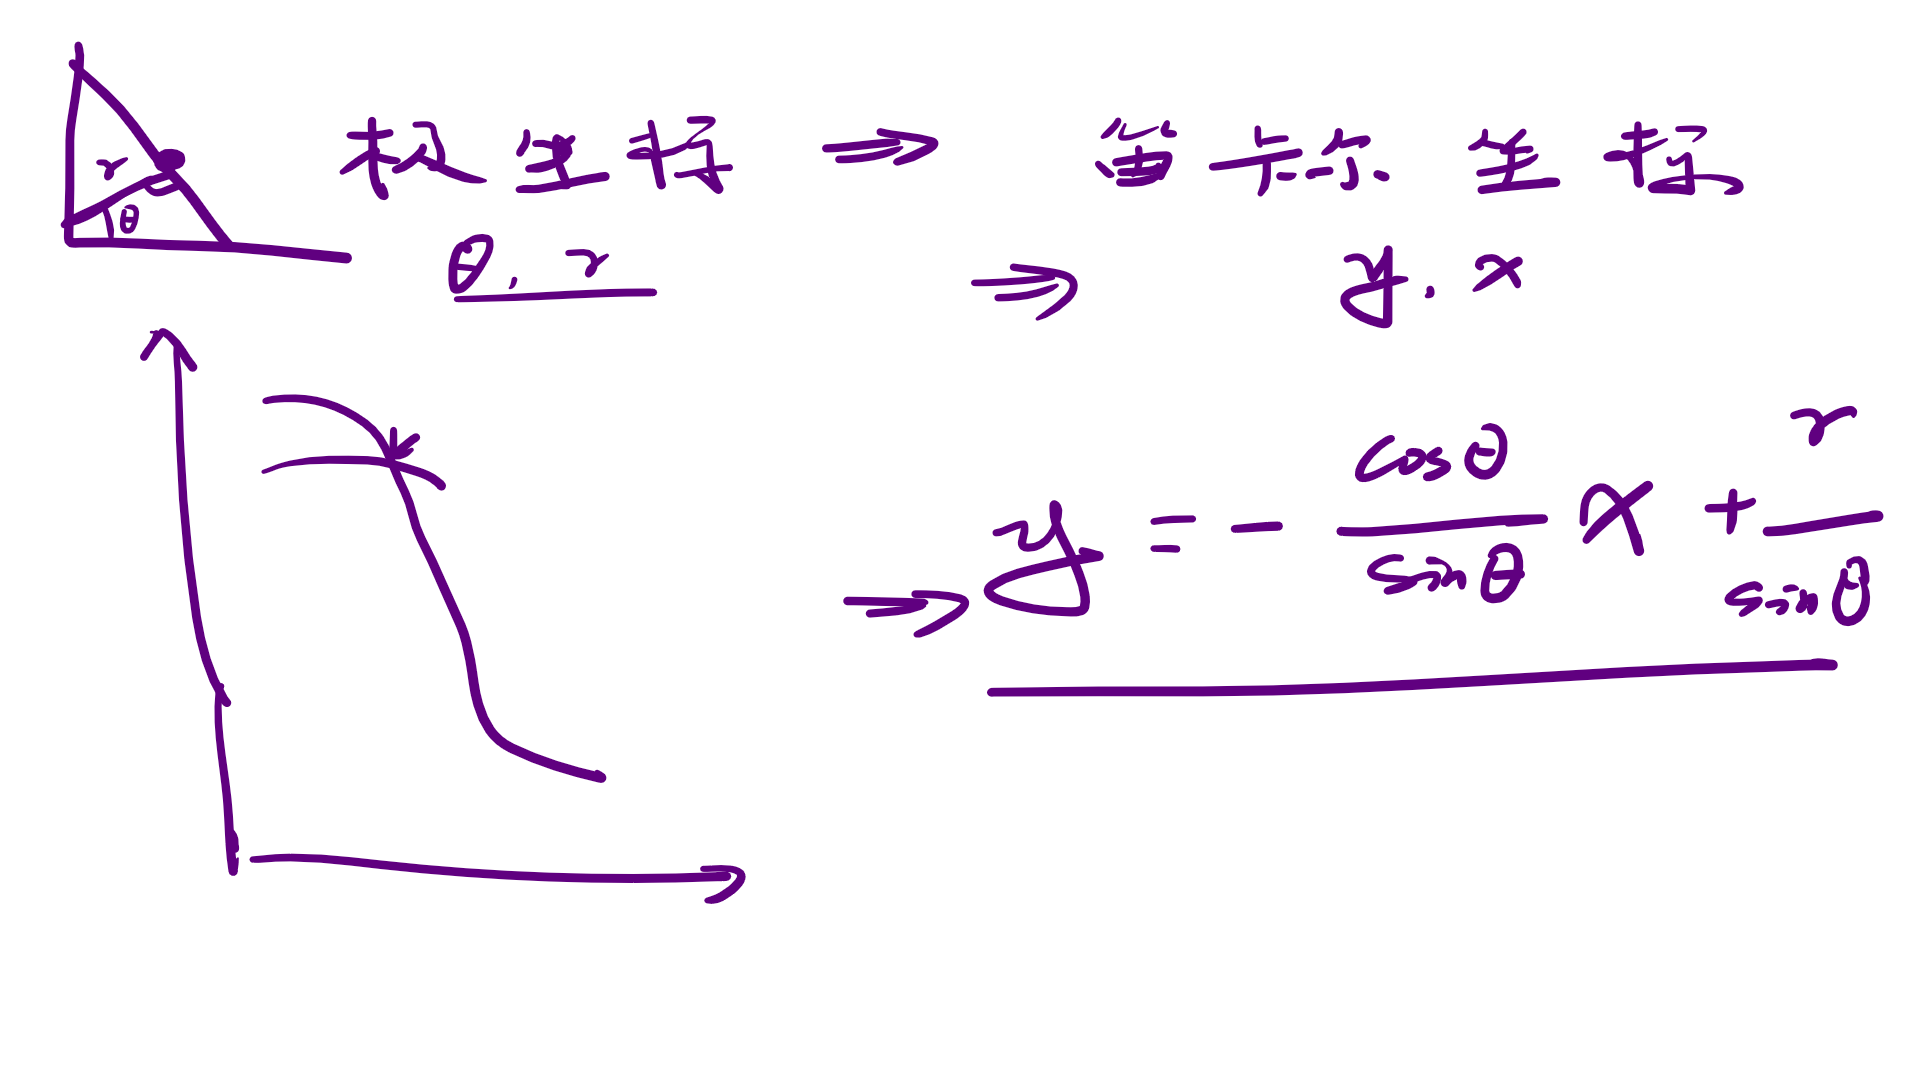 极坐标 ⇒ 笛卡尔坐标
r
θ
θ, r ⇒ y. x
⇒ y = - cosθ/sinθ x + r/sinθ